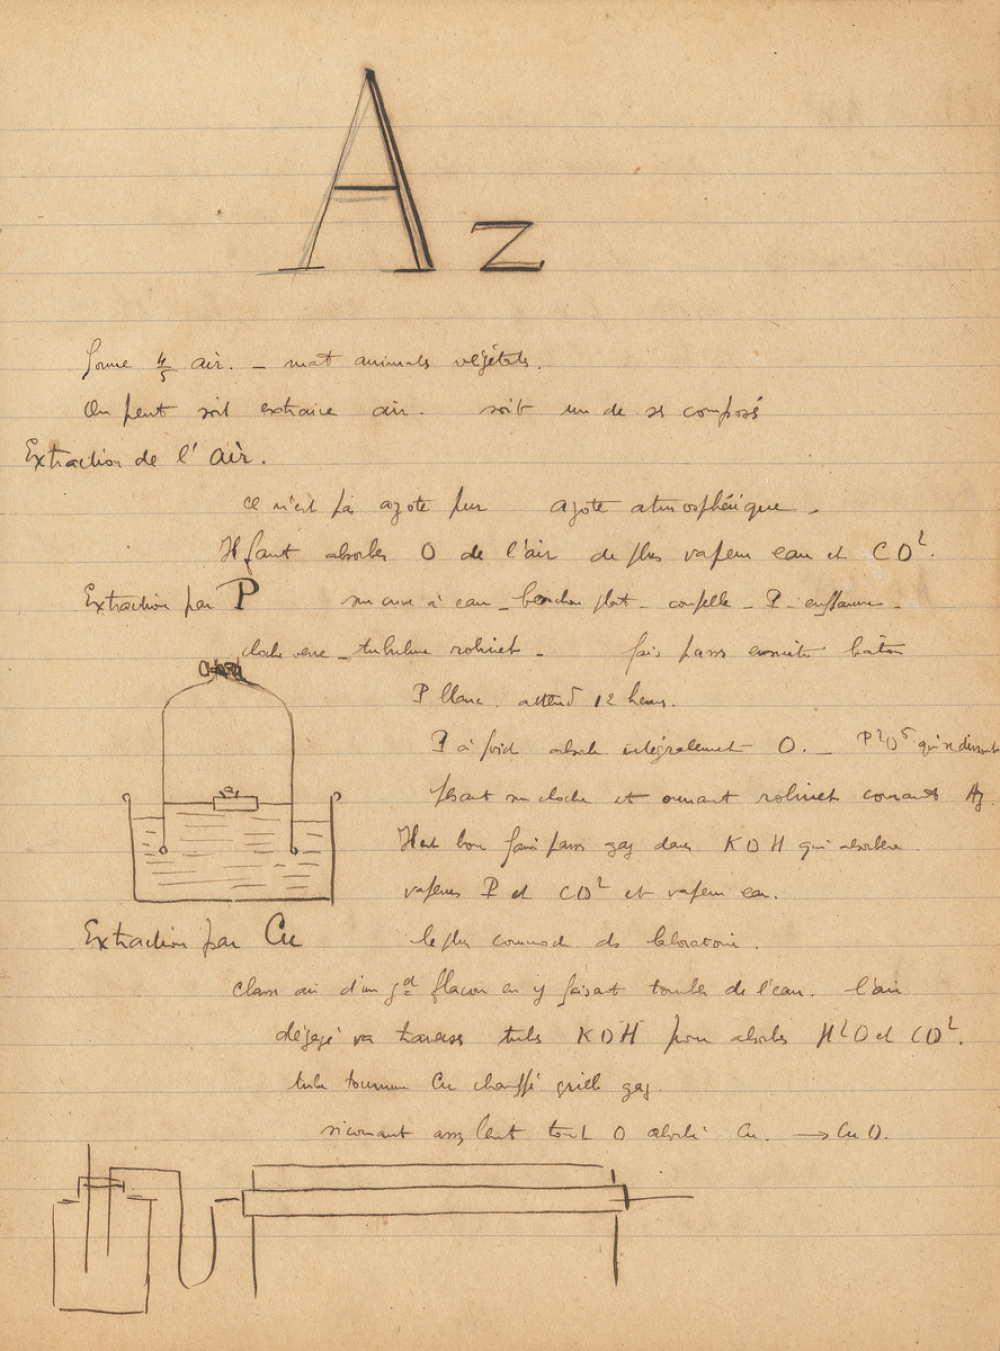 Az
forme 4/5 air. – mat animales végétales.
On peut soit extraire air. soit un de ses composés
Extraction de l'air.
ce n'est pas azote pur azote atmosphérique –
Il faut absorber O de l'air de plus vapeur eau et CO².
Extraction par P sur cuve à eau – bouchon plat – coupelle – P – enflamme –
cloche verre – tubulure robinet – fais passer ensuite bâton
P blanc. attend 12 heures.
P à froid absorbe intégralement O. – P²O⁵ qui se dissout
pesant sur cloche et ouvrant robinet courant Az.
Il est bon faire passer gaz dans KOH qui absorbera
vapeurs P et CO² et vapeur eau.
Extraction par Cu le plus commode ds laboratoire.
chasse air d'un gd flacon en y faisant tomber de l'eau. l'air
dégagé va traverser tubes KOH pour absorber H²O et CO².
tube tournure Cu chauffé grille gaz.
si courant assez lent tout O absorbé Cu. → CuO.